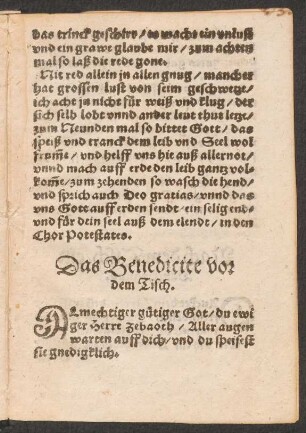 das trinck geschirr / es macht ein vnlust
vnd ein grawe glaube mir / zum achten
mal so laß die rede gone.
Nit red allein in allen gnug / mancher
hat grossen lust von seim geschwetze /
ich acht jn nicht für weiß vnd klug / der
sich selb lobt vnnd ander leut thut letze /
zum Neunden mal so bittet Gott / das
speiß vnd tranck dem leib vnd Seel wol
kumme / vnd helff vns hie auß aller not /
vnnd mach auff erde den leib gantz vol-
kome / zum zehenden so wasch die hend /
vnd sprich auch Deo gratias / vnnd das
vns Gott auff erden sendt / ein selig end /
vnd für dein seel auß dem elendt / in den
Chor Potestates.
Das Benedicite vor
dem Tisch.
ALmechtiger gütiger Got / du ewi
ger Herre Zebaoth / Aller augen
warten auff dich / vnd du speisest
sie gnedigklich.